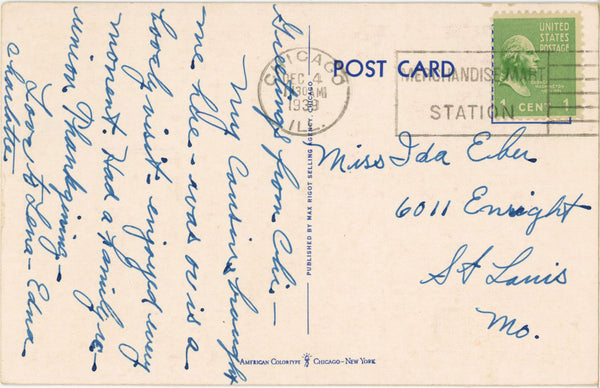 Greetings from Chi. —
My Cousin brought
me here — was or is a
lovely visit — enjoyed every
moment. Had a family re-
union Thanksgiving. —
Love to Lena — Edna
Charlotte.
PUBLISHED BY MAX RIGOT SELLING AGENCY, CHICAGO
POST CARD
CHICAGO
DEC 4
1130 AM
1939
ILL.
MERCHANDISE MART
STATION
UNITED
STATES
POSTAGE
WASHINGTON
1 CENT 1
Miss Ida Eber
6011 Enright
St Louis
Mo.
AMERICAN COLORTYPE CHICAGO - NEW YORK